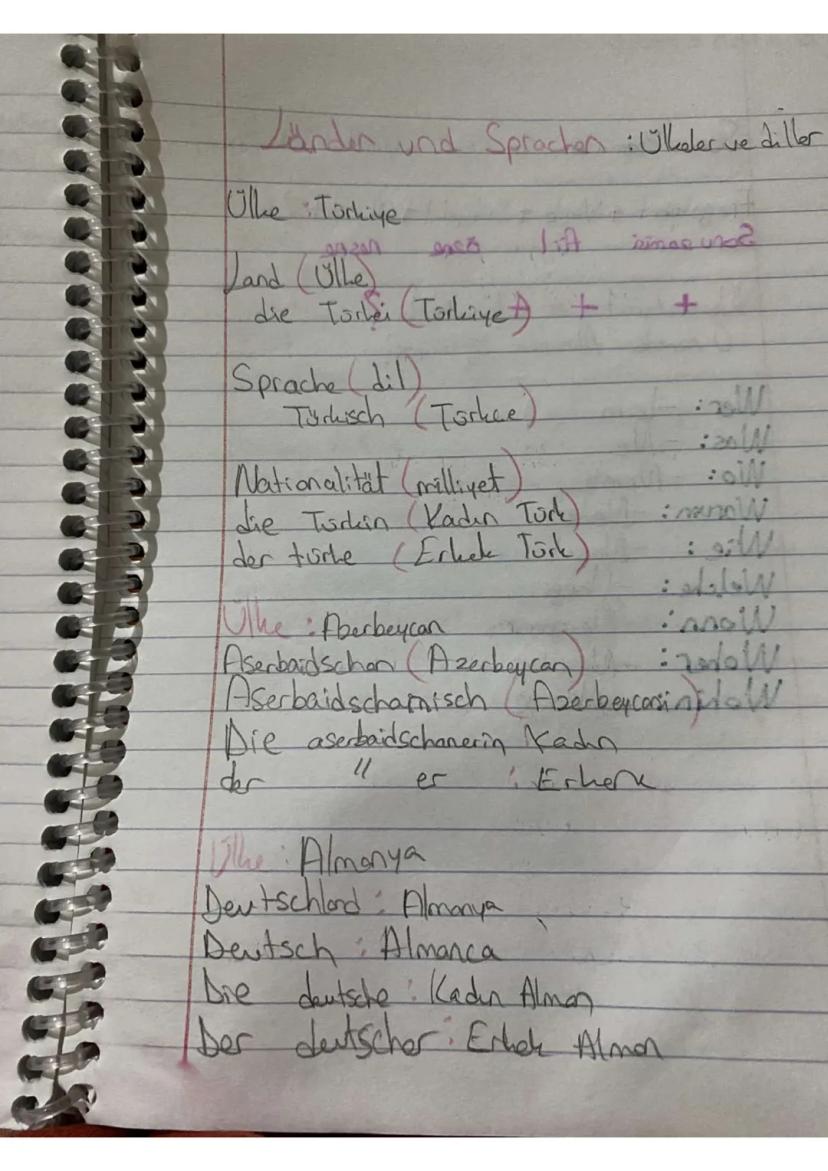 Länder und Sprachen : Ülkeler ve diller
Ülke : Türkiye
Land (Ülke)
die Türkei (Türkiye) + +
Sprache (dil)
Türkisch (Türkçe)
Nationalität (milliyet)
die Türkin (Kadın Türk)
der türke (Erkek Türk)
Ülke : Azerbeycan
Aserbaidschan (Azerbeycan)
Aserbaidschanisch (Azerbeycan
Die aserbaidschanerin Kadın
der " er : Erkek
Ülke : Almanya
Deutschland : Almanya
Deutsch : Almanca
Die deutsche : Kadın Alman
Der deutscher : Erkek Alman